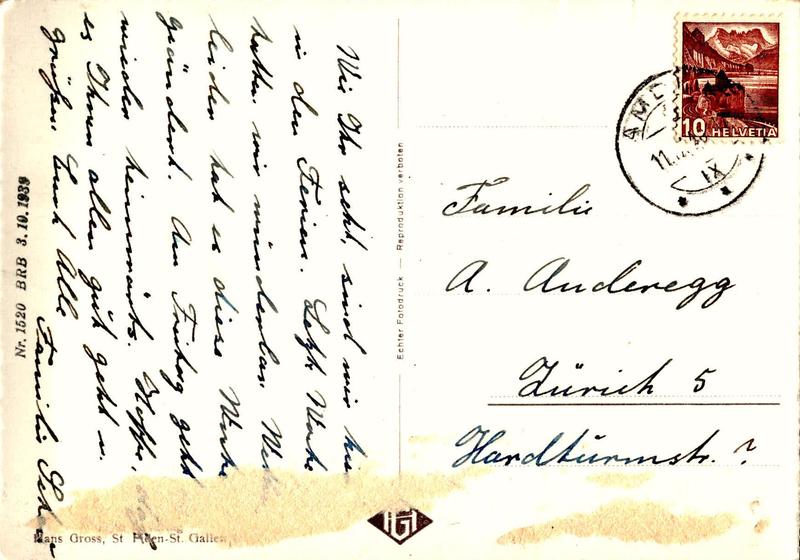 Wie Ihr seht, sind wir hier
in den Ferien. Letzte Woche
hatten wir wunderbar.
leider hat es diese Woche
geändert. Am Freitag geht
wieder heimwärts. Hoffe,
es Ihnen allen gut geht u.
grüßen Euch Alle
Familie
Nr. 1520 BRB 3.10.1939
Hans Gross, St. Gallen
Echter Fotodruck — Reproduktion verboten
HG
10 HELVETIA
11. IX
Familie
A. Anderegg
Zürich 5
Hardturmstr. ?